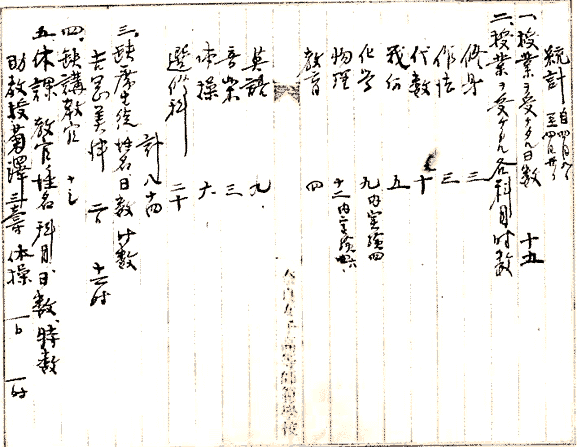 統計 自四月八日
至四月廿八日
一、授業ヲ受ケタル日数 十五
二、授業ヲ受ケタル各科目時数
修身 三
作法 三
代数 十
幾何 五
化学 九内実験四
物理 十二内実験六
教育 四
英語 九
音楽 三
体操 六
選修科 二十
計 八十四
三、缺席生徒姓名日数時数
二日 十二時
四、缺講教官 ナシ
五、休課教官姓名科目日数、時数
助教授 菊澤 三壽 体操 一日 一時
奈良女子高等師範学校